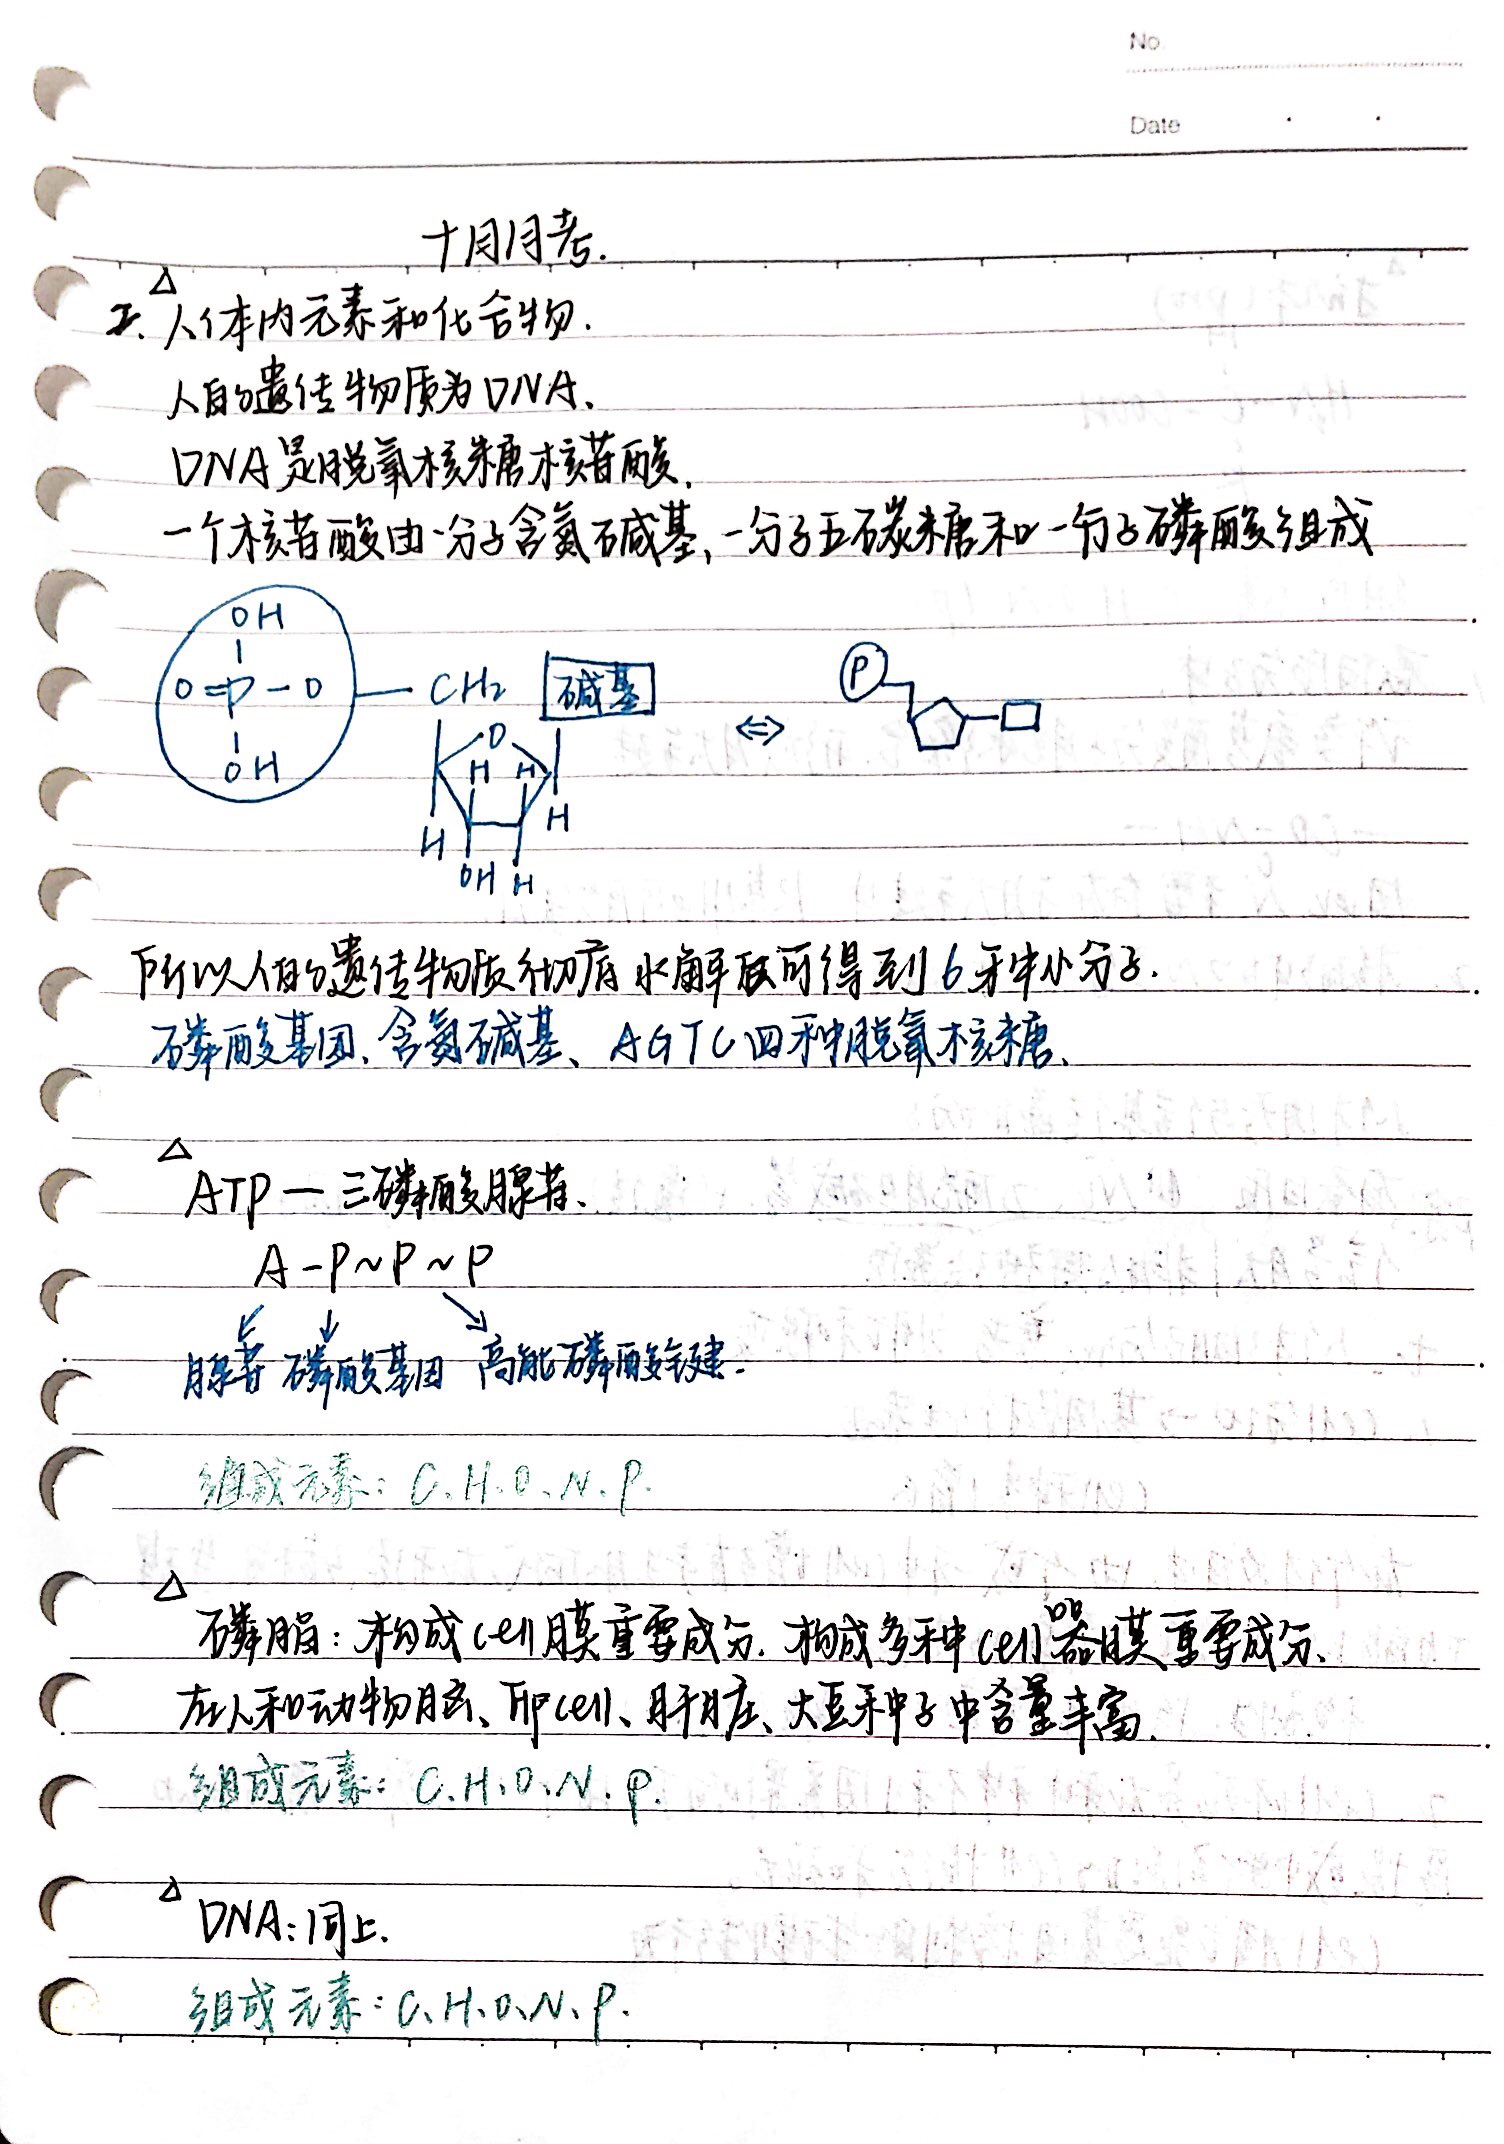 No.
Date
十月月考.
△
2. 人体内元素和化合物.
人的遗传物质为DNA.
DNA是脱氧核糖核苷酸.
一个核苷酸由一分子含氮碱基、一分子五碳糖和一分子磷酸组成
OH
O=P-O — CH₂ 碱基 ⇔ P
OH
O
H H
H H
OH H
所以人的遗传物质彻底水解后可得到6种小分子.
磷酸基团、含氮碱基、AGTC四种脱氧核糖、
△
ATP — 三磷酸腺苷、
A-P~P~P
腺苷 磷酸基团 高能磷酸键.
组成元素: C、H、O、N、P.
△
磷脂: 构成cell膜重要成分. 构成多种cell器膜重要成分、
在人和动物脑、卵cell、肝脏、大豆种子中含量丰富.
组成元素: C、H、O、N、P.
△
DNA: 同上.
组成元素: C、H、O、N、P.